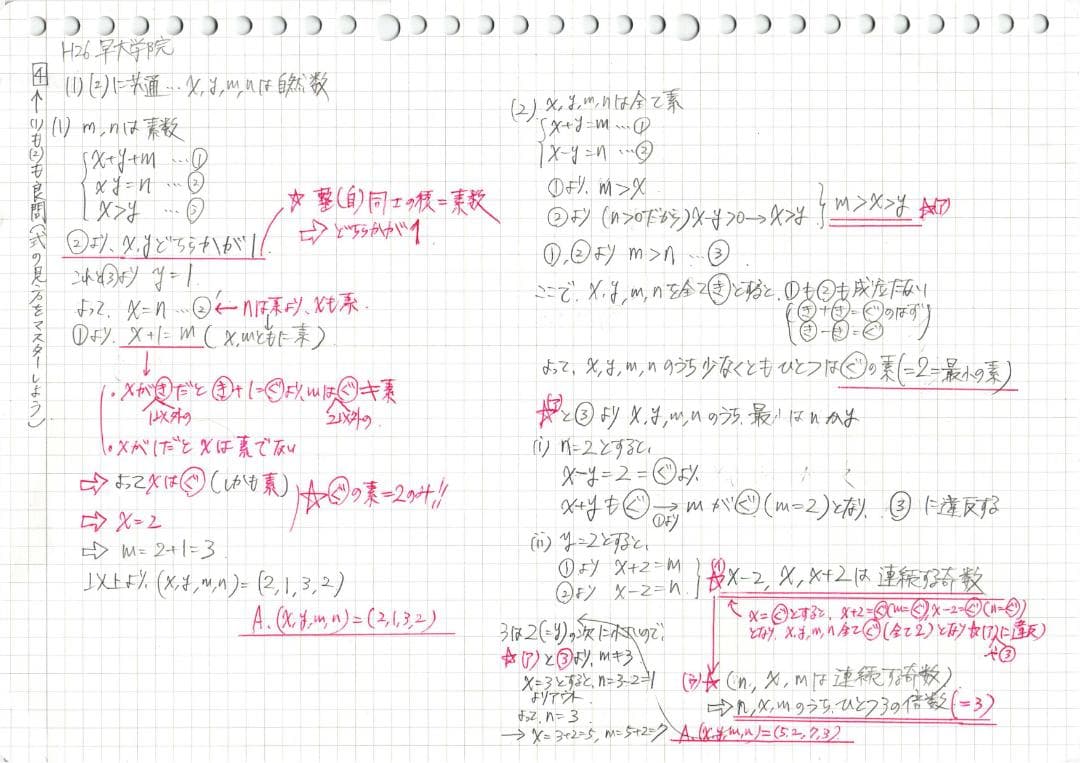 H26 早大学院
4 ← (1)も(2)も良問(式の見方をマスターしよう)
(1)(2)に共通… x, y, m, nは自然数
(1) m, nは素数
x+y+m …①
xy=n …②
x>y …③
②より、x, yどちらかが1
☆ 整(自)同士の積=素数
⇨ どちらかが1
これと③より y=1
よって、x=n …②' ← nは素より、xも素.
①より、x+1=m (x, mともに素)
・xがきだと き+1=ぐより、mはぐ≠素
1以外の
2以外の
・xが1だとxは素でない
⇨ よってxはぐ(しかも素)
☆ ぐの素=2のみ!!
⇨ x=2
⇨ m=2+1=3
以上より、(x, y, m, n)=(2, 1, 3, 2)
A. (x, y, m, n)=(2, 1, 3, 2)
(2) x, y, m, nは全て素
x+y=m …①
x-y=n …②
①より、m>x
②より (n>0だから) x-y>0→x>y
m>x>y ☆(ア)
①, ②より m>n …③
ここで、x, y, m, nを全てきとすると、①も②も成立たない
(き+き=ぐのはず
き-き=ぐ)
よって、x, y, m, nのうち少なくともひとつはぐの素(=2=最小の素)
☆(ア)と③より x, y, m, nのうち、最小はnかy
(i) n=2とすると、
x-y=2=ぐより、
x+yもぐ→mがぐ(m=2)となり、③に違反する
①より
(ii) y=2とすると、
①より x+2=m
②より x-2=n
☆(イ) x-2, x, x+2は連続する奇数
x=ぐとすると、x+2=ぐ(m=ぐ), x-2=ぐ(n=ぐ)
となり、x, y, m, n全てぐ(全て2)となり☆(ア)に違反
や③
3は2(=y)の次に小さいので、
☆(ア)と③より、m≠3
x=3とすると、n=3-2=1
よりアウト
よって、n=3
→ x=3+2=5, m=5+2=7
(ウ)☆(n, x, mは連続する奇数)
⇨ n, x, mのうち、ひとつ3の倍数(=3)
A. (x, y, m, n)=(5, 2, 7, 3)